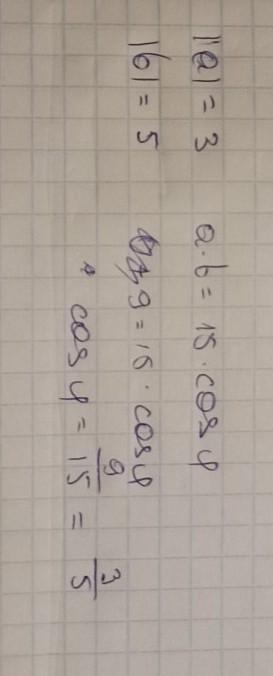 |a| = 3 a·b = 15 · cos φ
|b| = 5 9 = 15 · cos φ
cos φ = 9/15 = 3/5